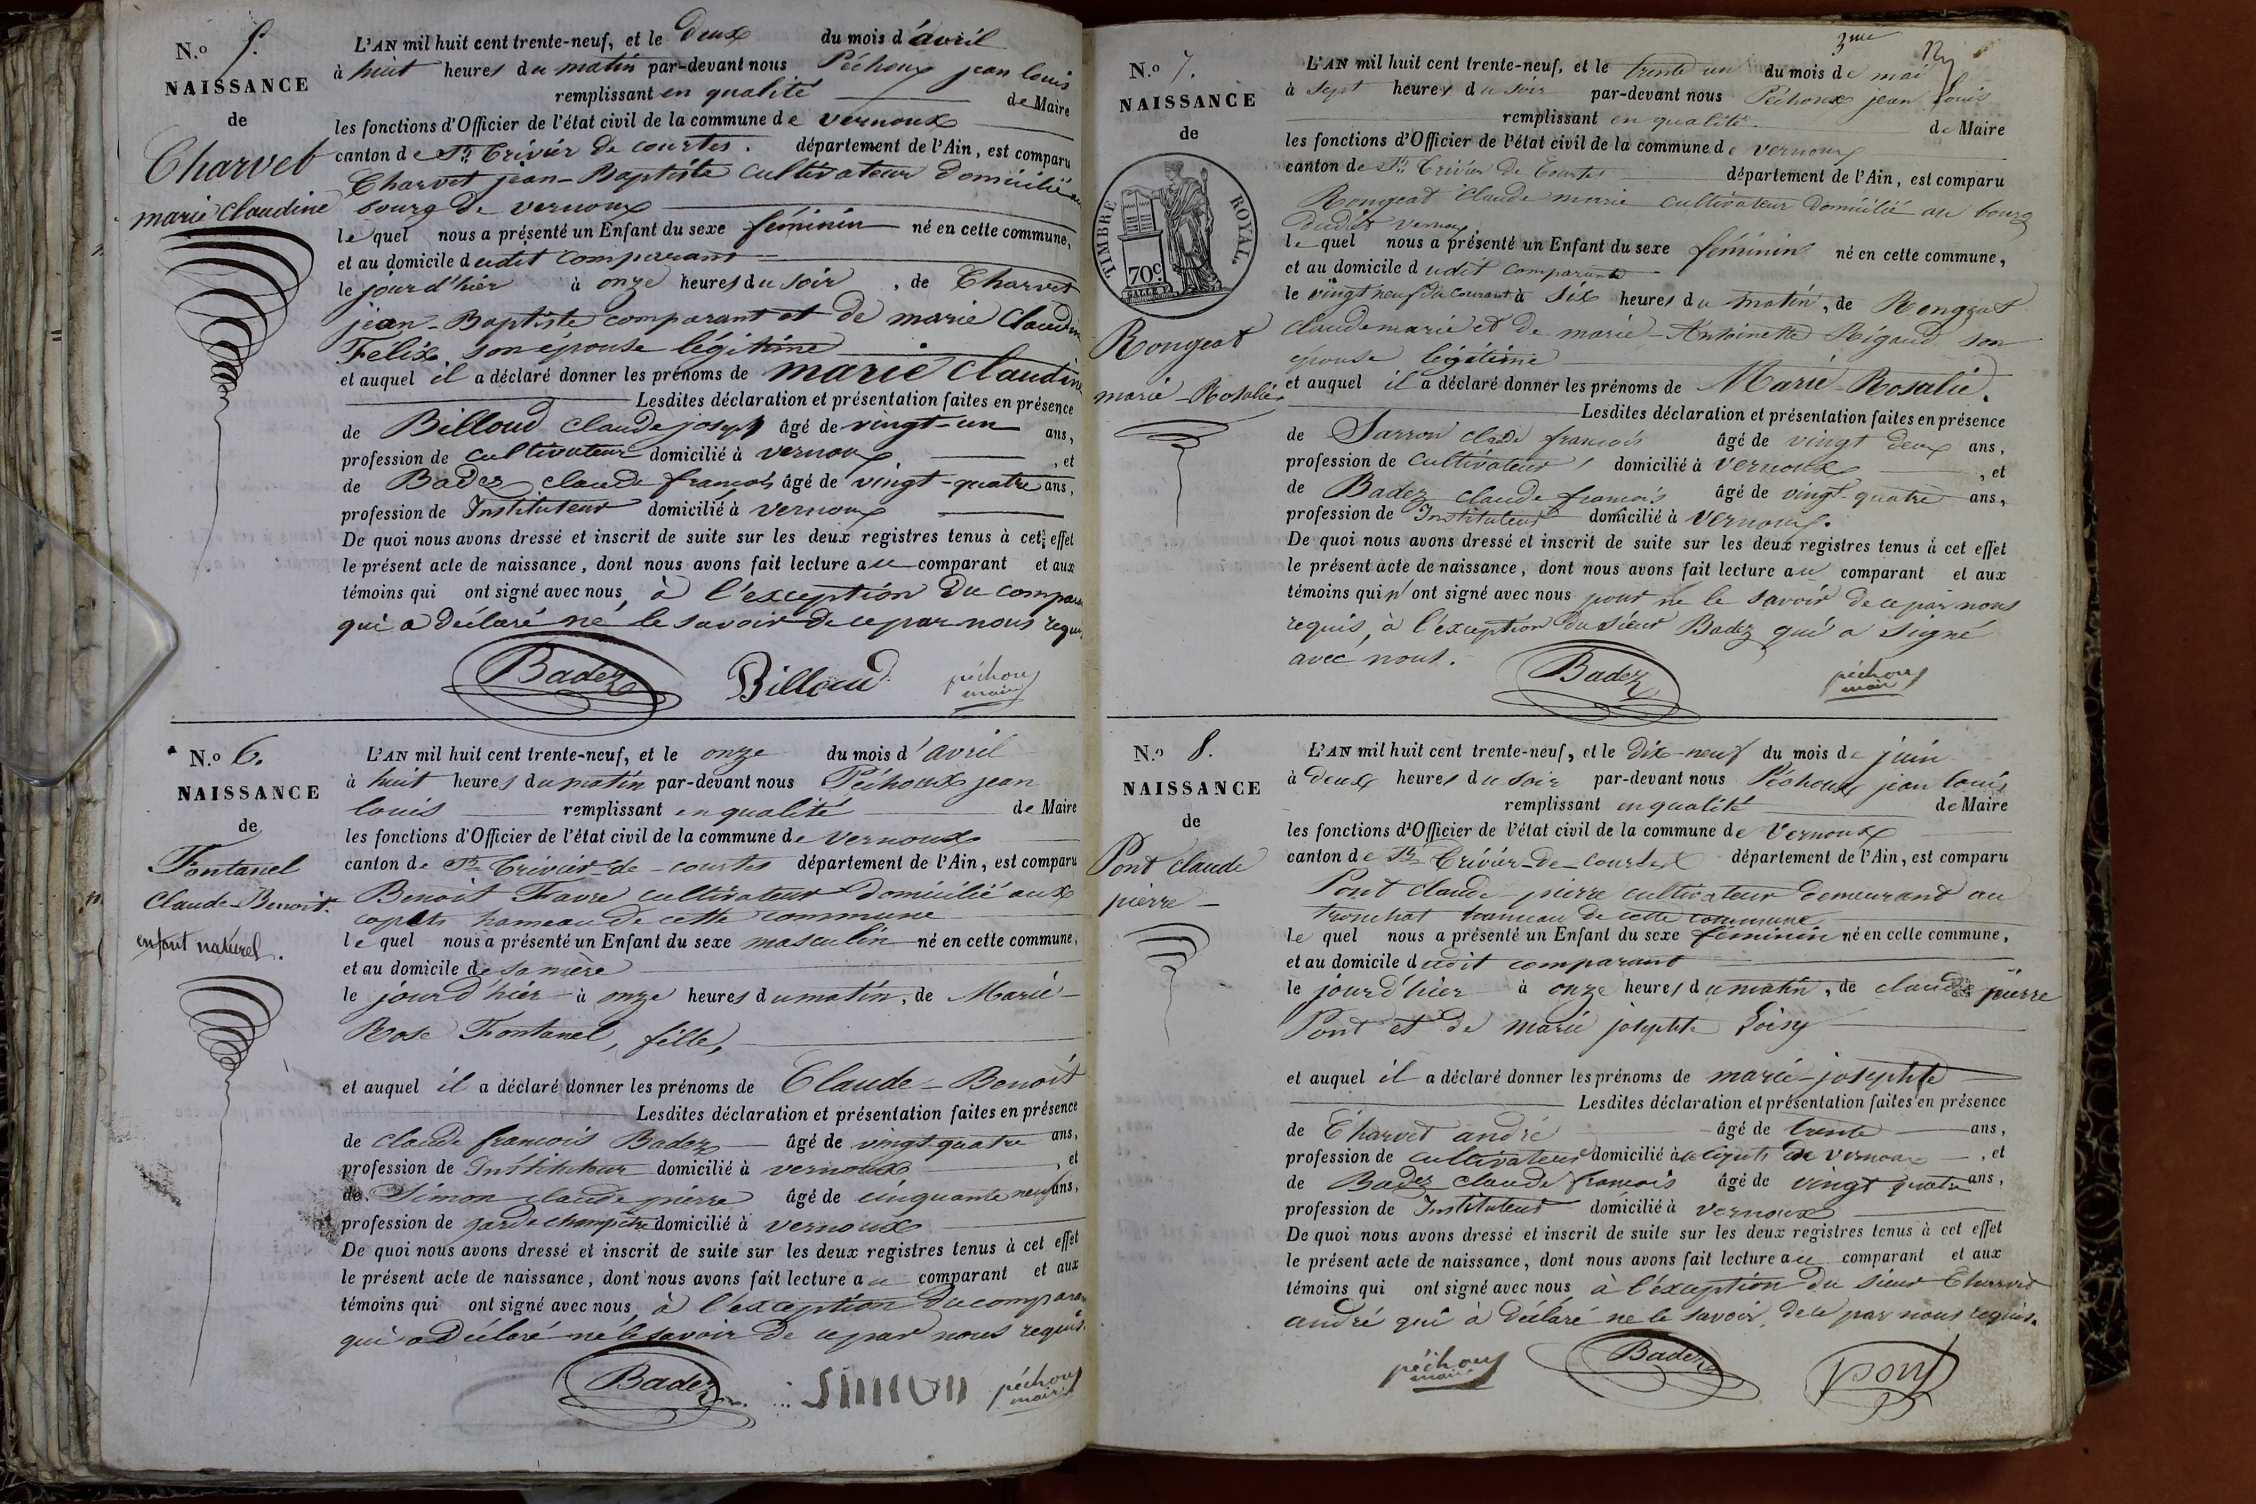 N.o 5.
NAISSANCE
de
Charvet
marie Claudine
L'AN mil huit cent trente-neuf, et le deux du mois d'avril
à huit heures du matin par-devant nous Péchoux jean louis
remplissant en qualité de Maire
les fonctions d'Officier de l'état civil de la commune de vernoux
canton de St. Trivier de courtes. département de l'Ain, est comparu
Charvet jean-Baptiste cultivateur domicilié au
bourg de vernoux
le quel nous a présenté un Enfant du sexe féminin né en cette commune,
et au domicile dudit comparant
le jour d'hier à onze heures du soir, de Charvet
jean-Baptiste comparant et de marie Claudine
Félix, son épouse légitime
et auquel il a déclaré donner les prénoms de marie Claudine
Lesdites déclaration et présentation faites en présence
de Billoud claude joseph âgé de vingt-un ans,
profession de cultivateur domicilié à vernoux, et
de Badez claude françois âgé de vingt-quatre ans,
profession de Instituteur domicilié à vernoux
De quoi nous avons dressé et inscrit de suite sur les deux registres tenus à cet effet
le présent acte de naissance, dont nous avons fait lecture au comparant et aux
témoins qui ont signé avec nous, à l'exception du compara
qui a déclaré ne le savoir de ce par nous requis
Badez Billoud péchoux
maire
N.o 6.
NAISSANCE
de
Fontanel
Claude-Benoit.
enfant naturel.
L'AN mil huit cent trente-neuf, et le onze du mois d'avril
à huit heures du matin par-devant nous Péchoux jean
louis remplissant en qualité de Maire
les fonctions d'Officier de l'état civil de la commune de vernoux
canton de St. Trivier-de-courtes département de l'Ain, est comparu
Benoit Favre cultivateur domicilié aux
hameau de cette commune
le quel nous a présenté un Enfant du sexe masculin né en cette commune,
et au domicile de sa mère
le jour d'hier à onze heures du matin, de Marie-
Rose Fontanel, fille,
et auquel il a déclaré donner les prénoms de Claude-Benoit
Lesdites déclaration et présentation faites en présence
de claude françois Badez âgé de vingt-quatre ans,
profession de Instituteur domicilié à vernoux, et
de Simon claude pierre âgé de cinquante neuf ans,
profession de garde champêtre domicilié à vernoux
De quoi nous avons dressé et inscrit de suite sur les deux registres tenus à cet effet
le présent acte de naissance, dont nous avons fait lecture au comparant et aux
témoins qui ont signé avec nous, à l'exception du comparant
qui a déclaré ne le savoir de ce par nous requis.
Badez Simon péchoux
maire
3me
N.o 7.
NAISSANCE
de
TIMBRE ROYAL.
70c
Rongeat
marie-Rosalie
L'AN mil huit cent trente-neuf, et le trente un du mois de mai
à sept heures du soir par-devant nous Péchoux jean louis
remplissant en qualité de Maire
les fonctions d'Officier de l'état civil de la commune de vernoux
canton de St. Trivier de Courtes département de l'Ain, est comparu
Rongeat Claude marie cultivateur domicilié au bourg
dudit vernoux
le quel nous a présenté un Enfant du sexe féminin né en cette commune,
et au domicile dudit comparant
le vingt neuf du courant à six heures du matin, de Rongeat
Claude marie et de marie-Antoinette Rigaud son
épouse légitime
et auquel il a déclaré donner les prénoms de Marie-Rosalie.
Lesdites déclaration et présentation faites en présence
de Sarron claude françois âgé de vingt deux ans,
profession de cultivateur, domicilié à vernoux, et
de Badez claude françois âgé de vingt-quatre ans,
profession de Instituteur domicilié à vernoux.
De quoi nous avons dressé et inscrit de suite sur les deux registres tenus à cet effet
le présent acte de naissance, dont nous avons fait lecture au comparant et aux
témoins qui n'ont signé avec nous pour ne le savoir de ce par nous
requis, à l'exception du sieur Badez qui a signé
avec nous.
Badez péchoux
maire
N.o 8.
NAISSANCE
de
Pont claude
pierre
L'AN mil huit cent trente-neuf, et le dix-neuf du mois de juin
à deux heures du soir par-devant nous Péchoux jean louis
remplissant en qualité de Maire
les fonctions d'Officier de l'état civil de la commune de Vernoux
canton de St. Trivier-de-Courtes département de l'Ain, est comparu
Pont claude pierre cultivateur demeurant au
tronchat hameau de cette commune
le quel nous a présenté un Enfant du sexe féminin né en cette commune,
et au domicile dudit comparant
le jour d'hier à onze heures du matin, de claude pierre
Pont et de marie josephte Loisy
et auquel il a déclaré donner les prénoms de marie-josephte
Lesdites déclaration et présentation faites en présence
de Charvet andré âgé de trente ans,
profession de cultivateur domicilié de vernoux, et
de Badez claude françois âgé de vingt quatre ans,
profession de Instituteur domicilié à vernoux
De quoi nous avons dressé et inscrit de suite sur les deux registres tenus à cet effet
le présent acte de naissance, dont nous avons fait lecture au comparant et aux
témoins qui ont signé avec nous à l'exception du sieur Charvet
andré qui à déclaré ne le savoir de ce par nous requis.
péchoux Badez pont
maire